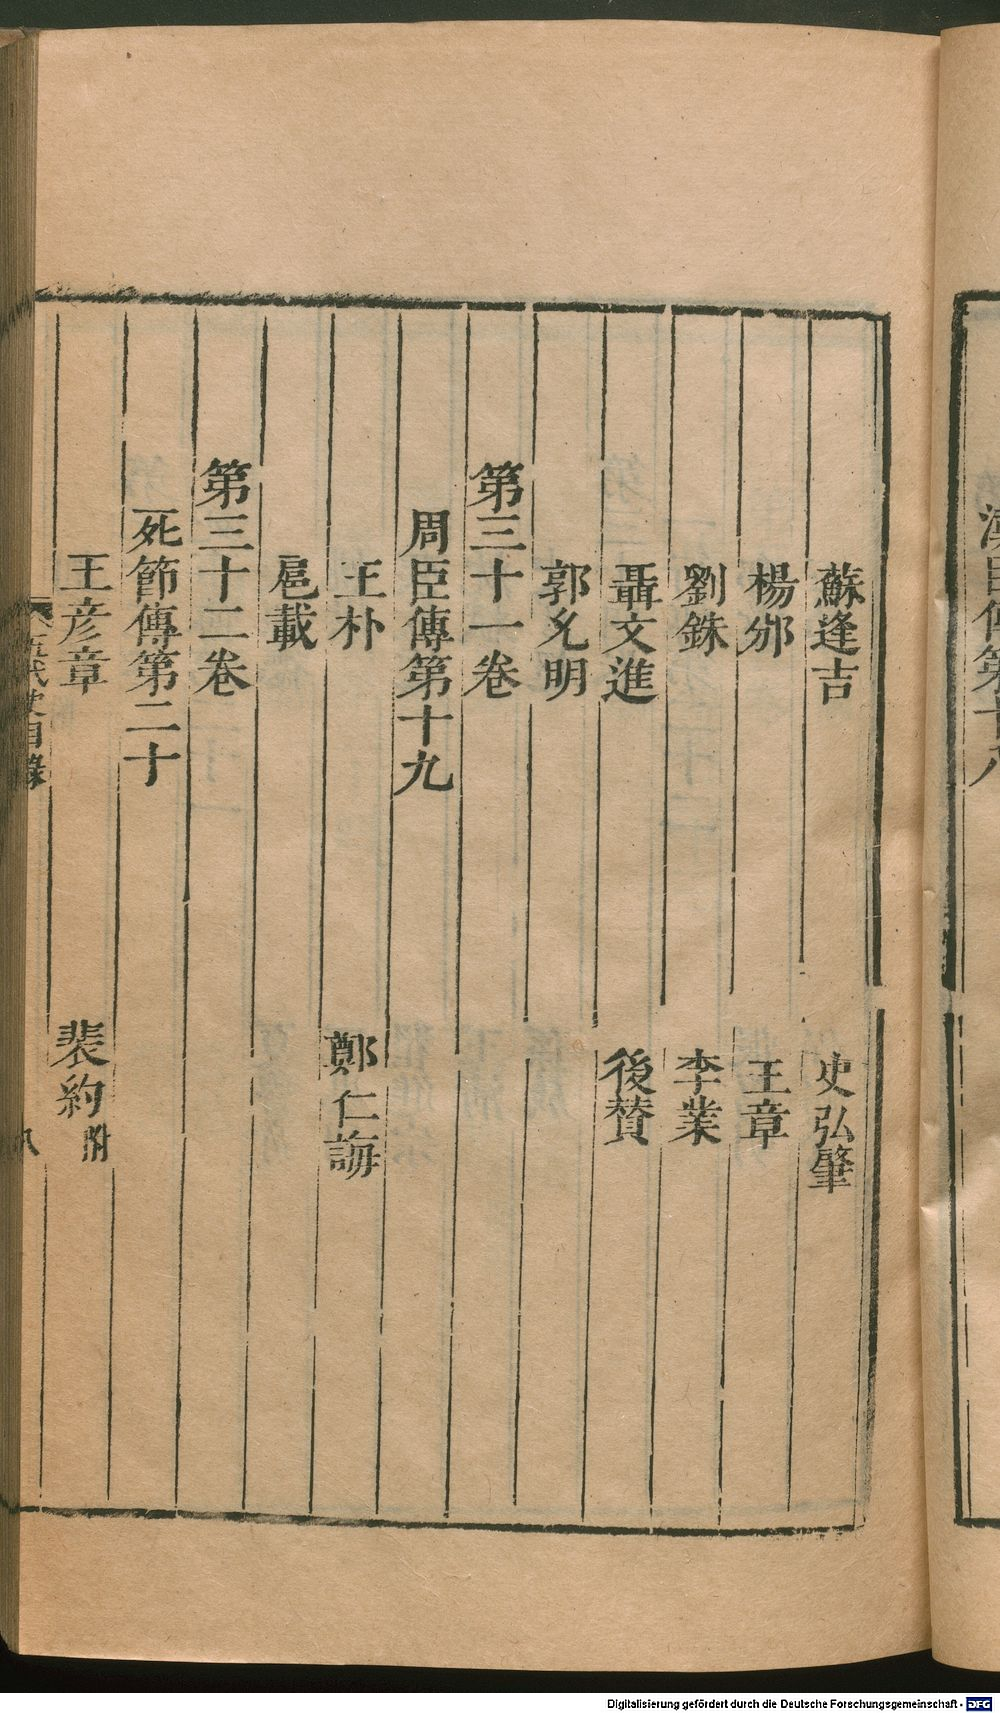 漢臣傳第十八
蘇逢吉　史弘肇
楊邠　王章
劉銖　李業
聶文進　後贊
郭允明
第三十一卷
周臣傳第十九
王朴　鄭仁誨
扈載
第三十二卷
死節傳第二十
王彦章　裴約附
五代史目錄　八
Digitalisierung gefördert durch die Deutsche Forschungsgemeinschaft - DFG